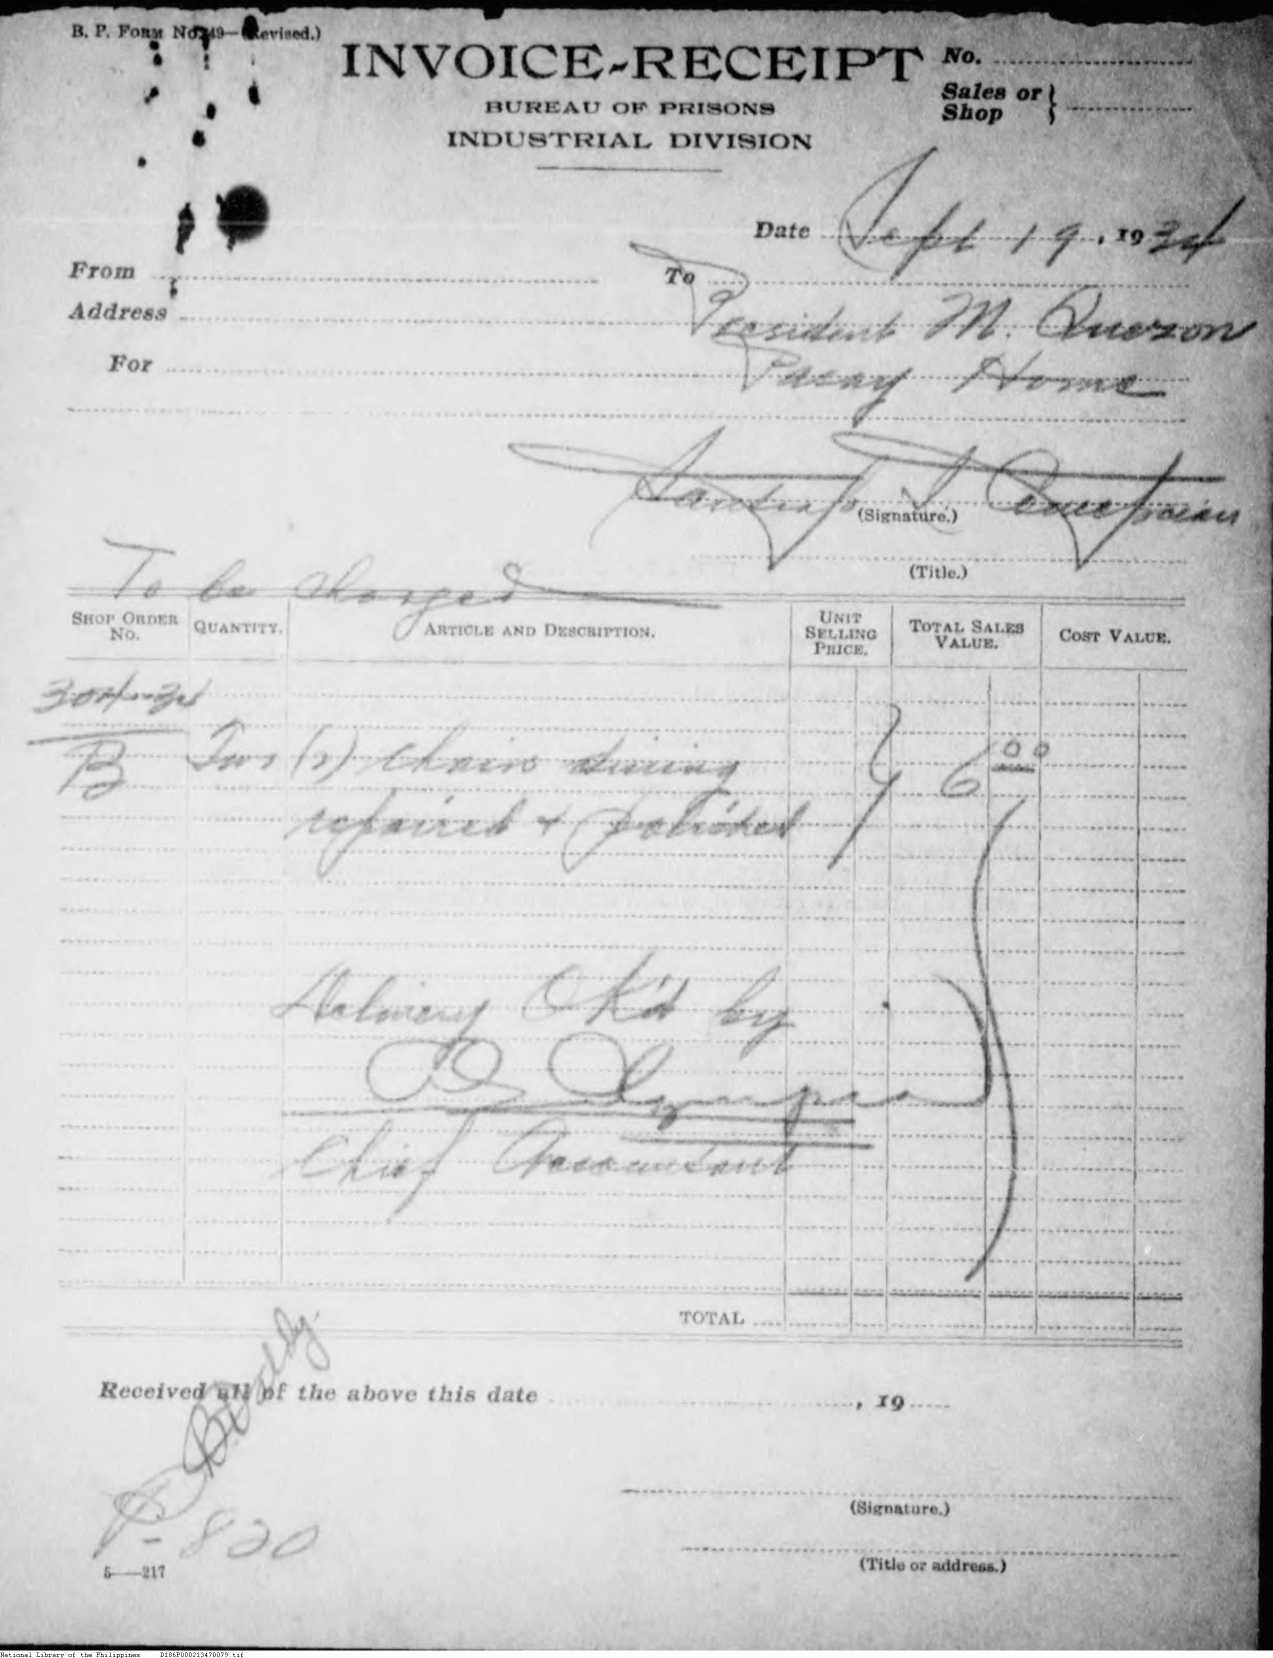 B. P. Form No. 49—(Revised.)
INVOICE-RECEIPT
BUREAU OF PRISONS
INDUSTRIAL DIVISION
No.
Sales or
Shop
Date Sept 19, 1934
From
To
Address
President M. Quezon
For
Pasay Home
Santiago T. Concepcion
(Signature.)
(Title.)
To be charged
SHOP ORDER No. QUANTITY. ARTICLE AND DESCRIPTION. UNIT SELLING PRICE. TOTAL SALES VALUE. COST VALUE.
304-34
B Two (2) chairs dining 6 00
repaired + polished
Delivery OK'd by
Chief Accountant
TOTAL
Received all of the above this date , 19
(Signature.)
P-820
(Title or address.)
5——217
National Library of the Philippines D186P000213470079.tif